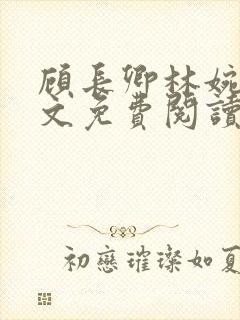 顾长卿林婉
文免費閱讀
初戀璀璨如夏